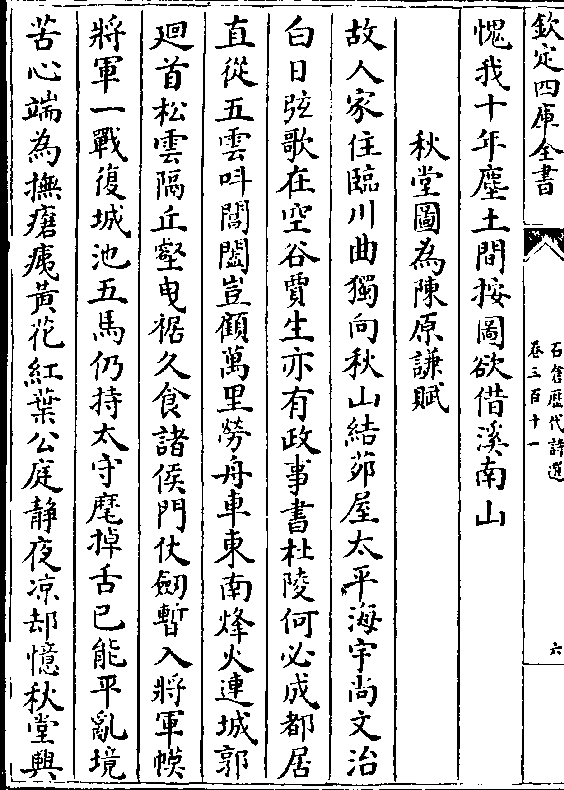 欽定四庫全書
石倉歷代詩選
卷三百十一
六
愧我十年塵土間按圖欲借溪南山
秋堂圖為陳原謙賦
故人家住臨川曲獨向秋山結茆屋太平海宇尚文治
白日弦歌在空谷賈生亦有政事書杜陵何必成都居
直從五雲呌閶闔豈顧萬里勞舟車東南烽火連城郭
廻首松雲隔丘壑曳裾久食諸侯門仗劒暫入將軍幙
將軍一戰復城池五馬仍持太守麾掉舌已能平亂境
苦心端為撫瘡痍黃花紅葉公庭静夜凉却憶秋堂興